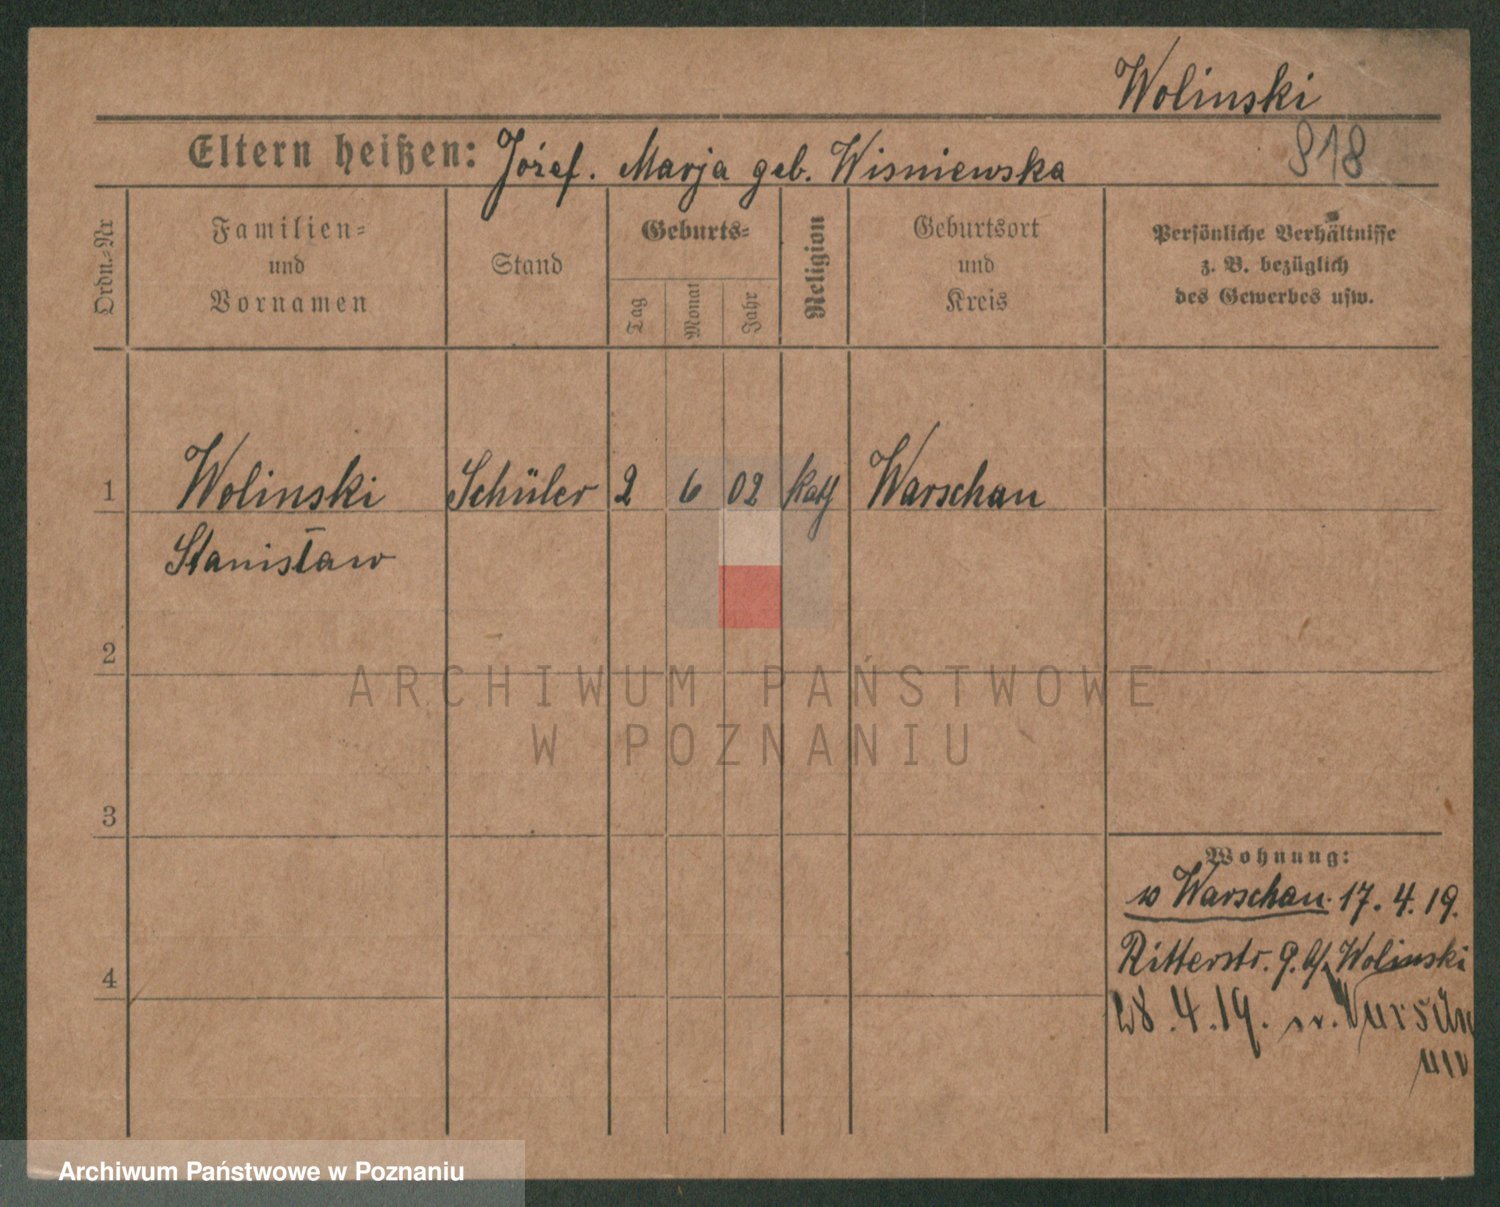 Wolinski
Eltern heißen: Józef. Marja geb. Wisniewska
818
Ordn.-Nr
Familien-
und
Vornamen
Stand
Geburts-
Tag
Monat
Jahr
Religion
Geburtsort
und
Kreis
Persönliche Verhältnisse
z. B. bezüglich
des Gewerbes usw.
1 Wolinski Schüler 2 6 02 kath Warschau
Stanisław
2
ARCHIWUM PAŃSTWOWE
W POZNANIU
3
4
Wohnung:
Warschau. 17. 4. 19.
Ritterstr. 9. Wolinski
28.4.19.
Archiwum Państwowe w Poznaniu